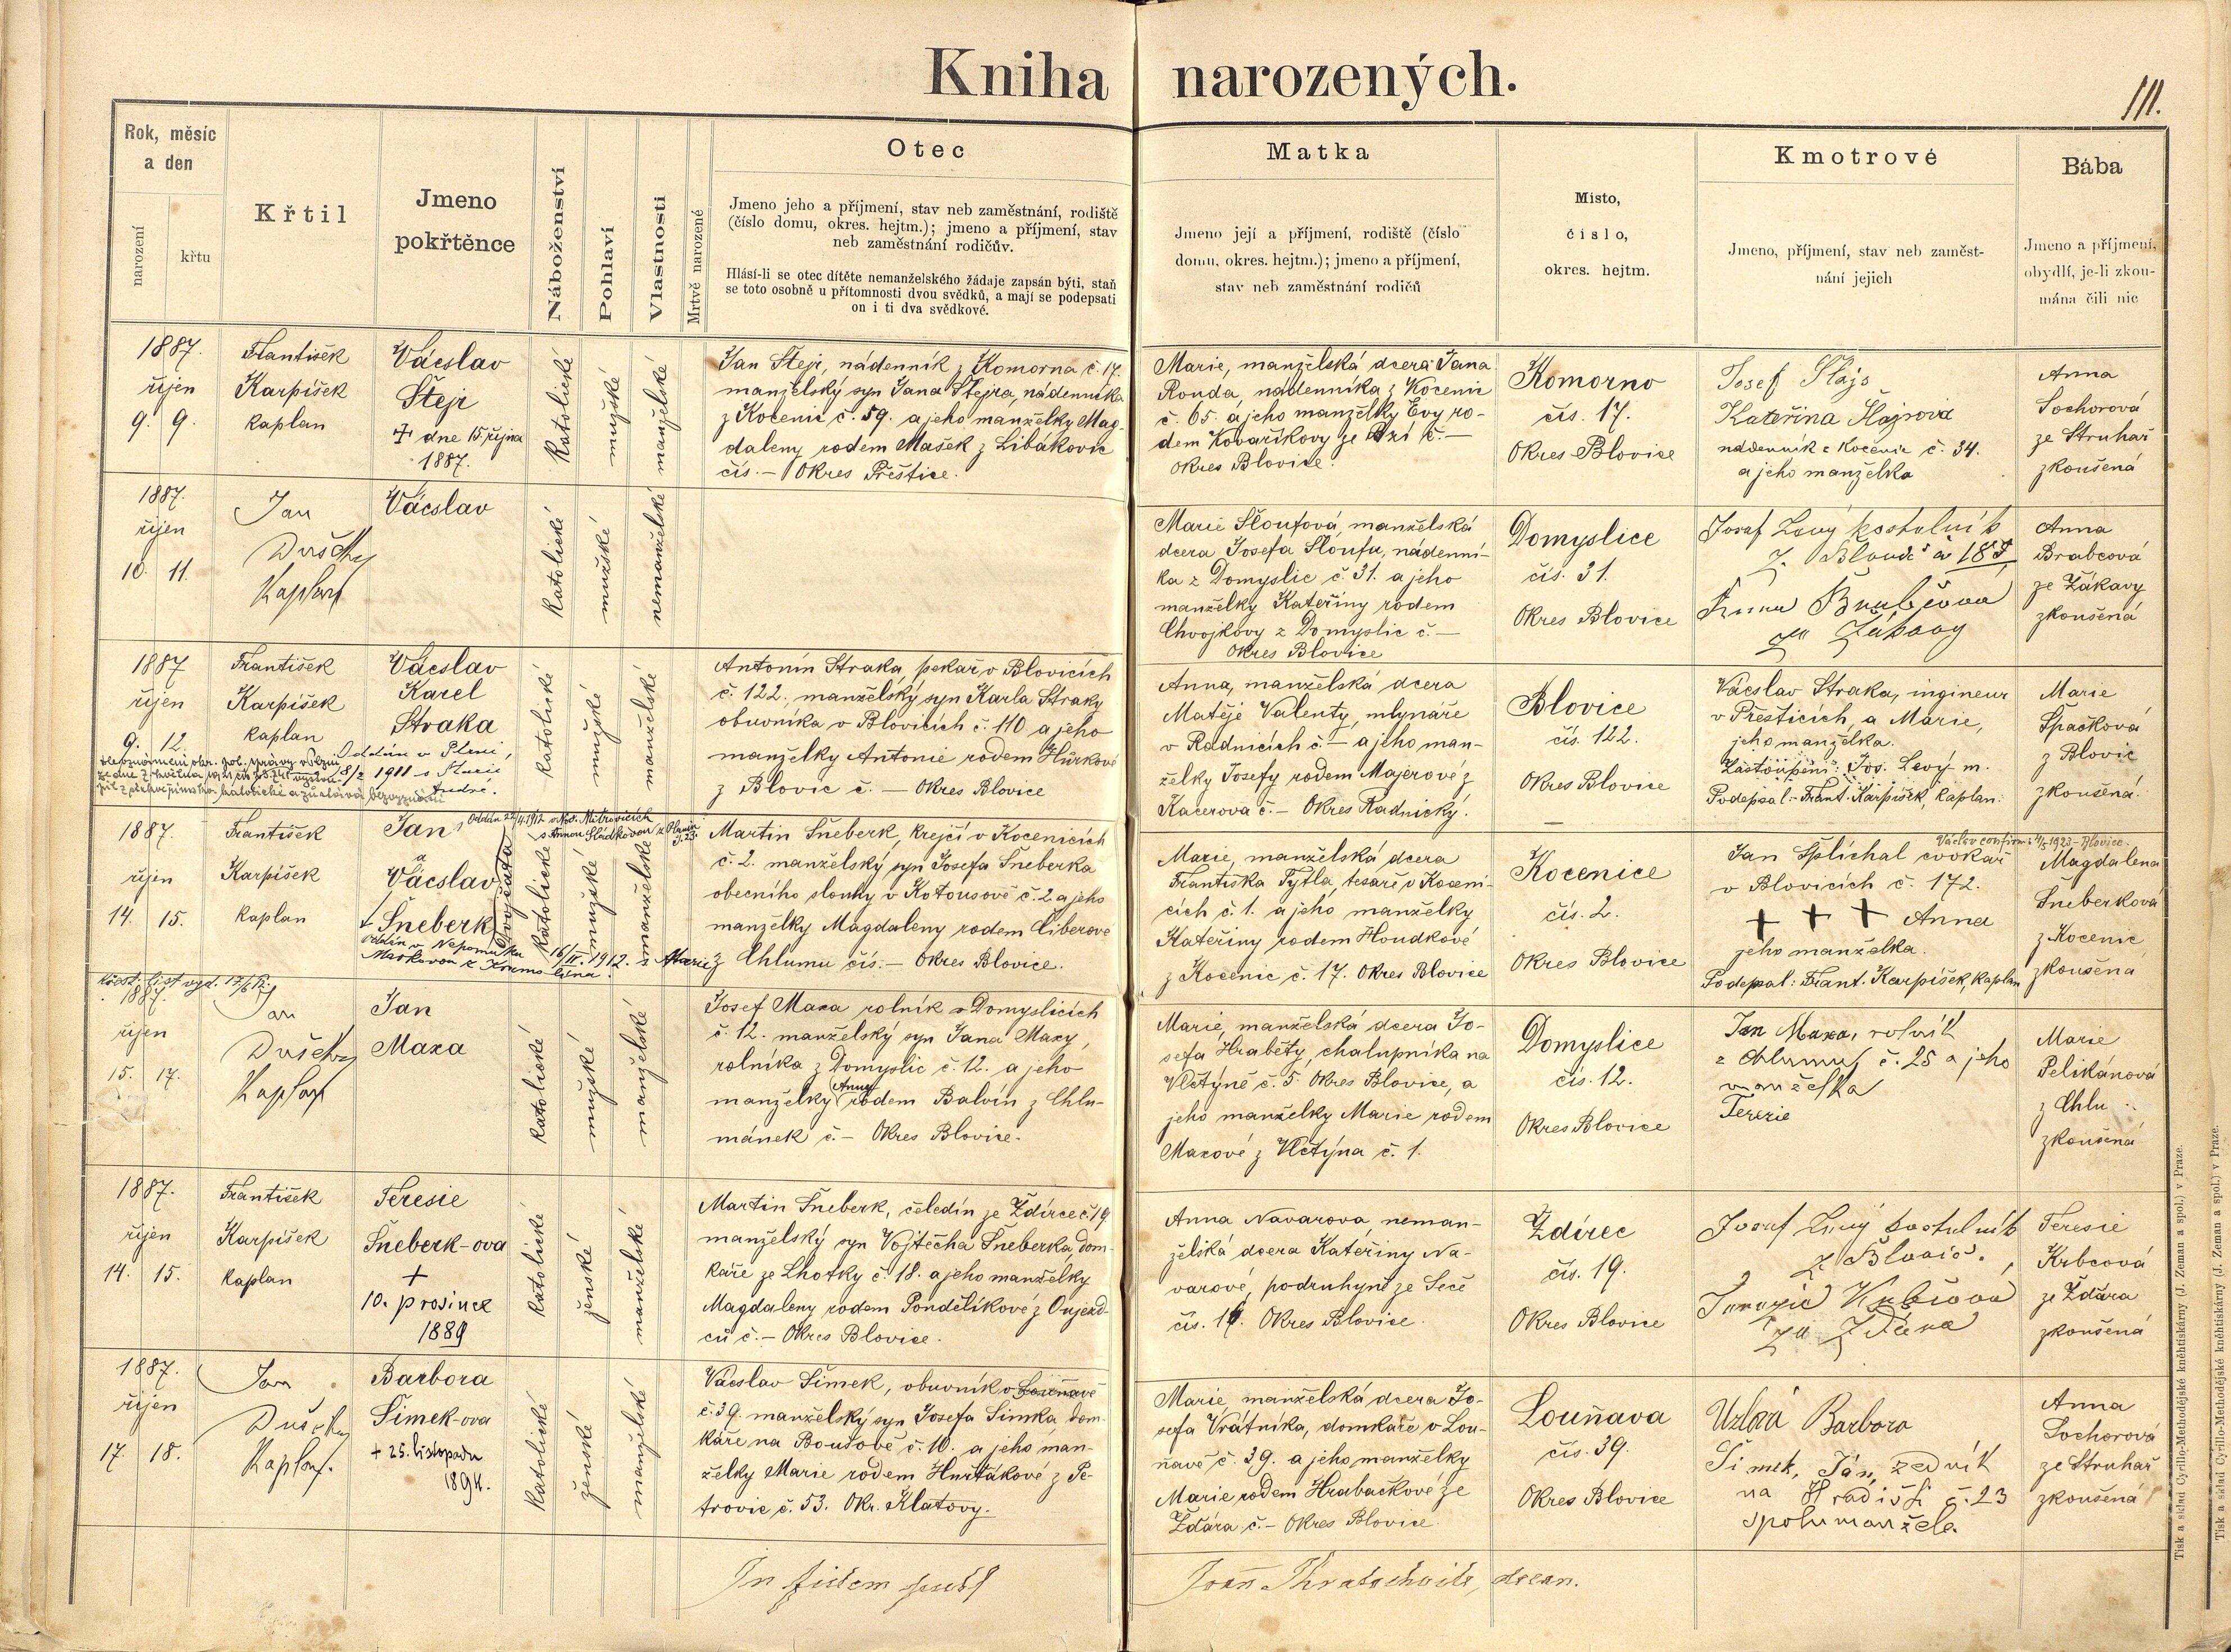 Kniha narozených.
111.
Rok, měsíc
a den
narození
křtu
Křtil
Jmeno
pokřtěnce
Náboženství
Pohlaví
Vlastnosti
Mrtvě narozené
Otec
Jmeno jeho a příjmení, stav neb zaměstnání, rodiště
(číslo domu, okres. hejtm.); jmeno a příjmení, stav
neb zaměstnání rodičův.
Hlásí-li se otec dítěte nemanželského žádaje zapsán býti, staň
se toto osobně u přítomnosti dvou svědků, a mají se podepsati
on i ti dva svědkové.
Matka
Jmeno její a příjmení, rodiště (číslo
domu, okres. hejtm.); jmeno a příjmení,
stav neb zaměstnání rodičů
Místo,
číslo,
okres. hejtm.
Kmotrové
Jmeno, příjmení, stav neb zaměst-
nání jejich
Bába
Jmeno a příjmení,
obydlí, je-li zkou-
mána čili nic
1887.
říjen
9. 9.
František
Karpíšek
kaplan
Vácslav
Štejr
† dne 15. října
1887.
katolické
mužské
manželské
Jan Štejr, nádenník z Komorna č. 17.
manželský syn Jana Štejra, nádenníka
z Kocenic č. 59. a jeho manželky Mag-
daleny rodem Mašek z Libákovic
čís. — Okres Přeštice.
Marie, manželská dcera Jana
Ronda, nádenníka z Kocenic
č. 65. a jeho manželky Evy ro-
dem Kovaříkovy ze č. —
Okres Blovice.
Komorno
čís. 17.
Okres Blovice
Josef Šlajs
Kateřina Šlajsová
nádenník z Kocenic č. 34.
a jeho manželka
Anna
Sochorová
ze Struhař
zkoušená
1887.
říjen
10. 11.
Jan
Dušek
Kaplan
Vácslav
katolické
mužské
nemanželské
Marie Sloufová, manželská
dcera Josefa Sloufa, nádenní-
ka z Domyslic č. 31. a jeho
manželky Kateřiny rodem
Chvojkovy z Domyslic č. —
Okres Blovice
Domyslice
čís. 31.
Okres Blovice
Josef Levý kostelník
z Blovic č 185
Anna Brabcova
ze Žákavy
Anna
Brabcová
ze Žákavy
zkoušená
1887
říjen
9. 12.
František
Karpíšek
kaplan
Vácslav
Karel
Straka
Oddán v Plzni,
8/2 1911 s Marií
katolické
mužské
manželské
Antonín Straka, pekař v Blovicích
č. 122., manželský syn Karla Straky
obuvníka v Blovicích č. 110 a jeho
manželky Antonie rodem Hůrkové
z Blovic č. — Okres Blovice
Anna, manželská dcera
Matěje Valenty, mlynáře
v Radnicích č. — a jeho man-
želky Josefy rodem Majerové z
Kacerova č. — Okres Radnický.
Blovice
čís. 122.
Okres Blovice
Vácslav Straka, ingineur
v Přešticích, a Marie,
jeho manželka.
Zastoupeni: Jos. Levý m.
Podepsal: Frant. Karpíšek, kaplan.
Marie
Špačková
z Blovic
zkoušená.
1887.
říjen
14. 15.
František
Karpíšek
kaplan
Jan
a
Vácslav
Šneberk
Dvojčata
Oddán v Nepomuku 16/IV. 1912. s Marií
katolické
mužské
manželské
Martin Šneberk, krejčí v Kocenicích
č. 2. manželský syn Josefa Šneberka
obecního slouhy v Kotousově č. 2 a jeho
manželky Magdaleny rodem Ciberové
z Chlumu čís. — Okres Blovice.
Marie, manželská dcera
Františka Tytla, tesaře v Koceni-
cích č. 1. a jeho manželky
Kateřiny rodem Houdkové
z Kocenic č. 17. Okres Blovice
Kocenice
čís. 2.
Okres Blovice
Jan Šplíchal cvokař
v Blovicích č. 172.
+ + + Anna
jeho manželka.
Podepsal: Frant. Karpíšek, kaplan
Magdalena
Šneberková
z Kocenic
zkoušená
1887.
říjen
15. 17.
Jan
Dušek
Kaplan
Jan
Maxa
katolické
mužské
manželské
Josef Maxa rolník v Domyslicích
č. 12. manželský syn Jana Maxy,
rolníka z Domyslic č. 12. a jeho
manželky Anny rodem Balvín z Chlu-
mánek č. — Okres Blovice.
Marie, manželská dcera Jo-
sefa Hraběty, chalupníka na
Vlčtýně č. 5. Okres Blovice, a
jeho manželky Marie rodem
Maxové z Vlčtýna č. 1.
Domyslice
čís. 12.
Okres Blovice
Jan Maxa, rolník
z Chlumu č. 25 a jeho
manželka
Terezie
Marie
Pelikánová
z Chlu
zkoušená
1887.
říjen
14. 15.
František
Karpíšek
kaplan
Teresie
Šneberk-ova
+
10. prosince
1889
katolické
ženské
manželské
Martin Šneberk, čeledín ze Ždírce č. 19
manželský syn Vojtěcha Šneberka, dom-
káře ze Lhotky č. 18. a jeho manželky
Magdaleny rodem Pondělíkové z Oujezd-
ců č. — Okres Blovice.
Anna Navarova, neman-
želská dcera Kateřiny Na-
varové, podruhyně ze Seče
čís. Okres Blovice.
Ždírec
čís. 19.
Okres Blovice
Josef Levý kostelník
z Blovic.
Terezie Krbcová
ze Ždára
Teresie
Krbcová
ze Ždára
zkoušená
1887.
říjen
17. 18.
Jan
Dušek
Kaplan.
Barbora
Šimek-ova
+ 25. listopadu
1894.
katolické
ženské
manželské
Vácslav Šimek, obuvník v Louňavě
č. 39. manželský syn Josefa Šimka, dom-
káře na Boušově č. 10. a jeho man-
želky Marie rodem Hurťákové z Pe-
trovic č. 53. Okr. Klatovy.
Marie, manželská dcera Jo-
sefa Vrátníka, domkáře v Lou-
ňavě č. 39. a jeho manželky
Marie rodem Hrabačkové ze
Ždára č. — Okres Blovice
Louňava
čís. 39.
Okres Blovice
Uzlzá Barbora
Šimek, Ján, zedník
na Hradišti č. 23
spolumanžela.
Anna
Sochorová
ze Struhař
zkoušená
In fidem publ
Joan Kratochvile, decan.
Tisk a sklad Cyrillo-Methodějské kněhtiskárny (J. Zeman a spol.) v Praze.
Tisk a sklad Cyrillo-Methodějské kněhtiskárny (J. Zeman a spol.) v Praze.